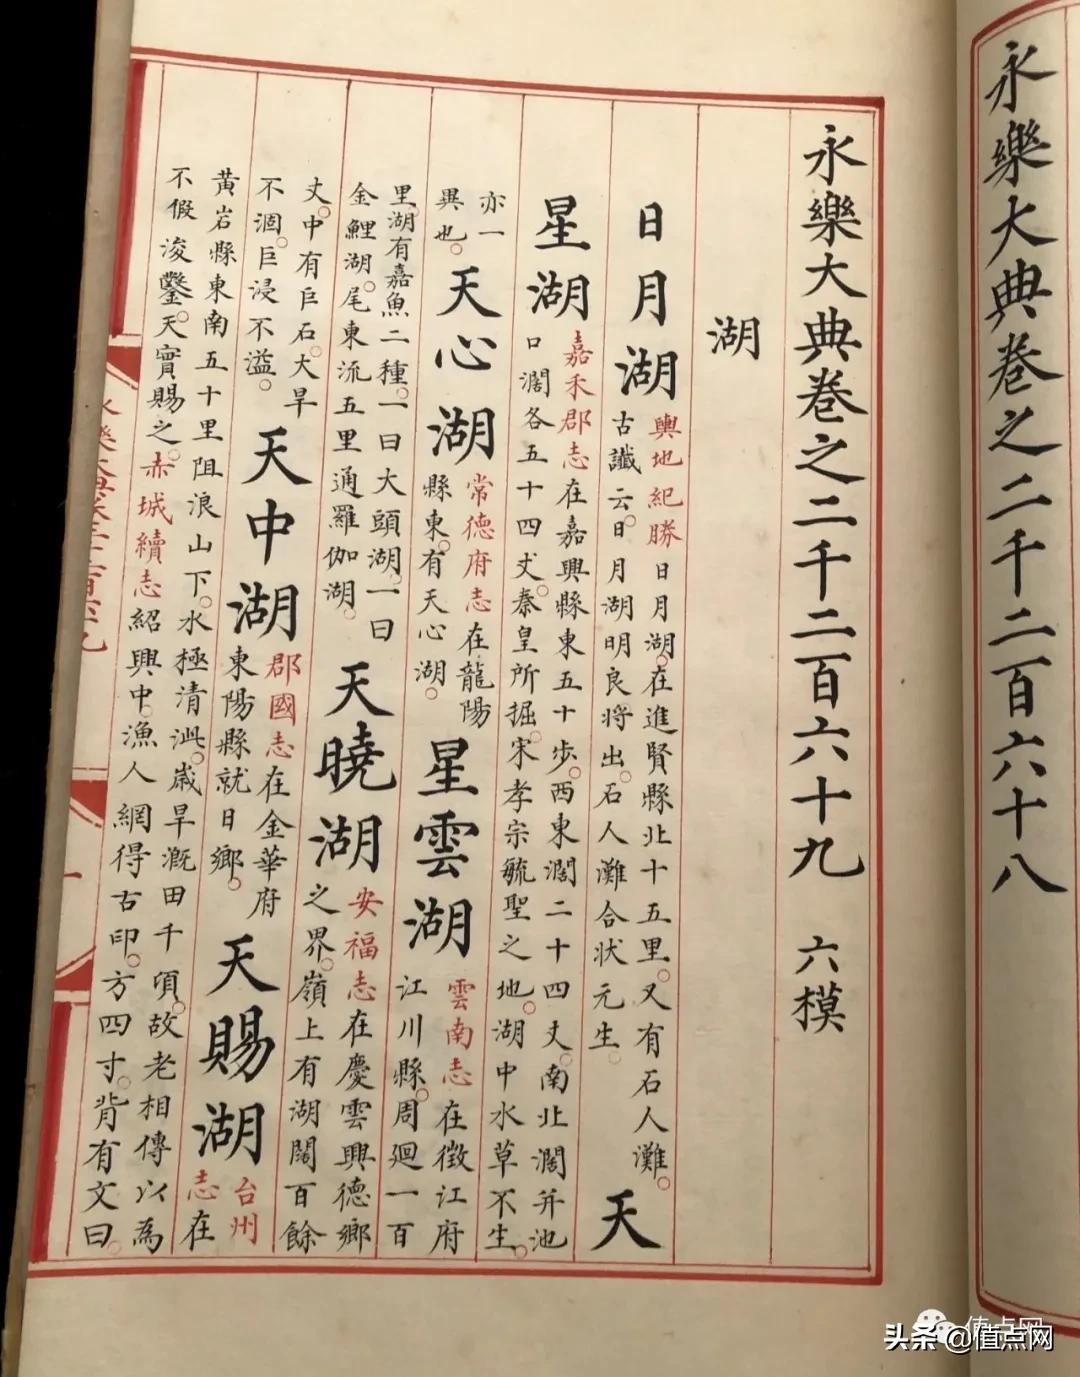 永樂大典卷之二千二百六十八
永樂大典卷之二千二百六十九 六模
湖
日月湖
輿地紀勝日月湖。在進賢縣北十五里。又有石人灘。
古讖云。日月湖明良將出。石人灘合狀元生。
天
星湖
嘉禾郡志在嘉興縣東五十步。西東濶二十四丈。南北濶并池
口濶各五十四丈。秦皇所掘。宋孝宗毓聖之地。湖中水草不生。
亦一
異也。
天心湖
常德府志在龍陽
縣東。有天心湖。
星雲湖
雲南志在徵江府
江川縣。周廻一百
里。湖有嘉魚二種。一曰大頭湖。一曰
金鯉湖。尾東流五里通羅伽湖。
天曉湖
安福志在慶雲興德鄉
之界。嶺上有湖闊百餘
丈。中有巨石。大旱
不涸。巨浸不溢。
天中湖
郡國志在金華府
東陽縣就日鄉。
天賜湖
台州
志在
黃岩縣東南五十里阻浪山下。水極清泚。歲旱溉田千頃。故老相傳以為
不假浚鑿。天實賜之。赤城續志紹興中。漁人網得古印。方四寸。背有文曰。
头条 @值点网
值点网